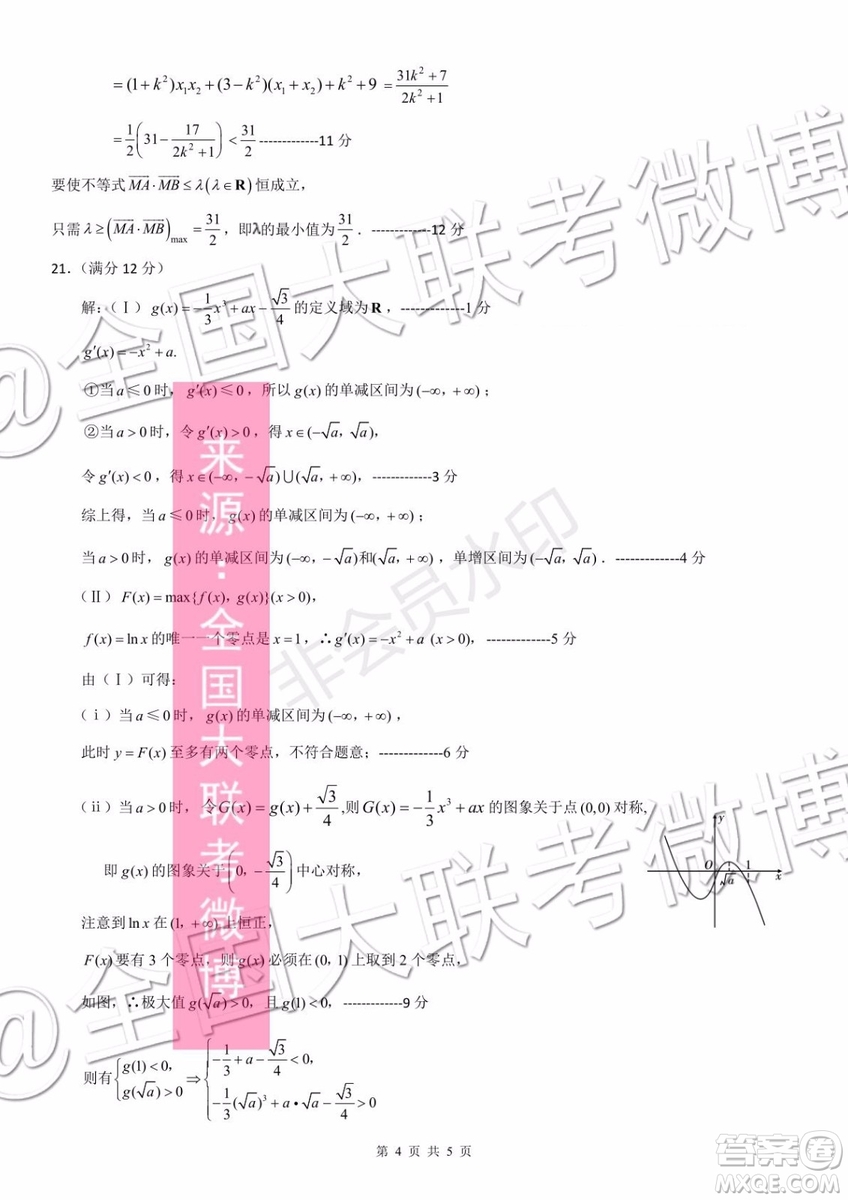 =(1+k²)x₁x₂+(3-k²)(x₁+x₂)+k²+9=\frac{31k²+7}{2k²+1}
=\frac{1}{2}(31-\frac{17}{2k²+1})<\frac{31}{2}-------------11 分
要使不等式\overrightarrow{MA}·\overrightarrow{MB}≤λ(λ∈R)恒成立，
只需λ≥(\overrightarrow{MA}·\overrightarrow{MB})_{max}=\frac{31}{2}，即λ的最小值为\frac{31}{2}．-------------12 分
21.（满分 12 分）
解:（Ⅰ）g(x)=-\frac{1}{3}x³+ax-\frac{\sqrt{3}}{4}的定义域为R，-------------1 分
g′(x)=-x²+a.
①当a≤0时，g′(x)≤0，所以g(x)的单减区间为(-∞，+∞)；
②当a>0时，令g′(x)>0，得x∈(-√a，√a)，
令g′(x)<0，得x∈(-∞，-√a)∪(√a，+∞)，-------------3 分
综上得，当a≤0时，g(x)的单减区间为(-∞，+∞)；
当a>0时，g(x)的单减区间为(-∞，-√a)和(√a，+∞)，单增区间为(-√a，√a)．-------------4 分
（Ⅱ）F(x)=max{f(x)，g(x)}(x>0)，
f(x)=ln x的唯一一个零点是x=1，∴g′(x)=-x²+a (x>0)，-------------5 分
由（Ⅰ）可得:
（ⅰ）当a≤0时，g(x)的单减区间为(-∞，+∞)，
此时y=F(x)至多有两个零点，不符合题意；-------------6 分
（ⅱ）当a>0时，令G(x)=g(x)+\frac{\sqrt{3}}{4},则G(x)=-\frac{1}{3}x³+ax的图象关于点(0,0)对称,
即g(x)的图象关于(0，-\frac{\sqrt{3}}{4})中心对称，
y
O
√a
1
x
注意到ln x在(1，+∞)上恒正，
F(x)要有 3 个零点，则g(x)必须在(0，1)上取到 2 个零点，
如图，∴极大值g(√a)>0，且g(1)<0，-------------9 分
则有{g(1)<0，g(√a)>0⇒{-\frac{1}{3}+a-\frac{\sqrt{3}}{4}<0，
-\frac{1}{3}(√a)³+a•√a-\frac{\sqrt{3}}{4}>0
第 4 页 共 5 页
来源：全国大联考微博
@全国大联考微博
@全国大联考微博
非会员水印
答案圈
MXQE.COM